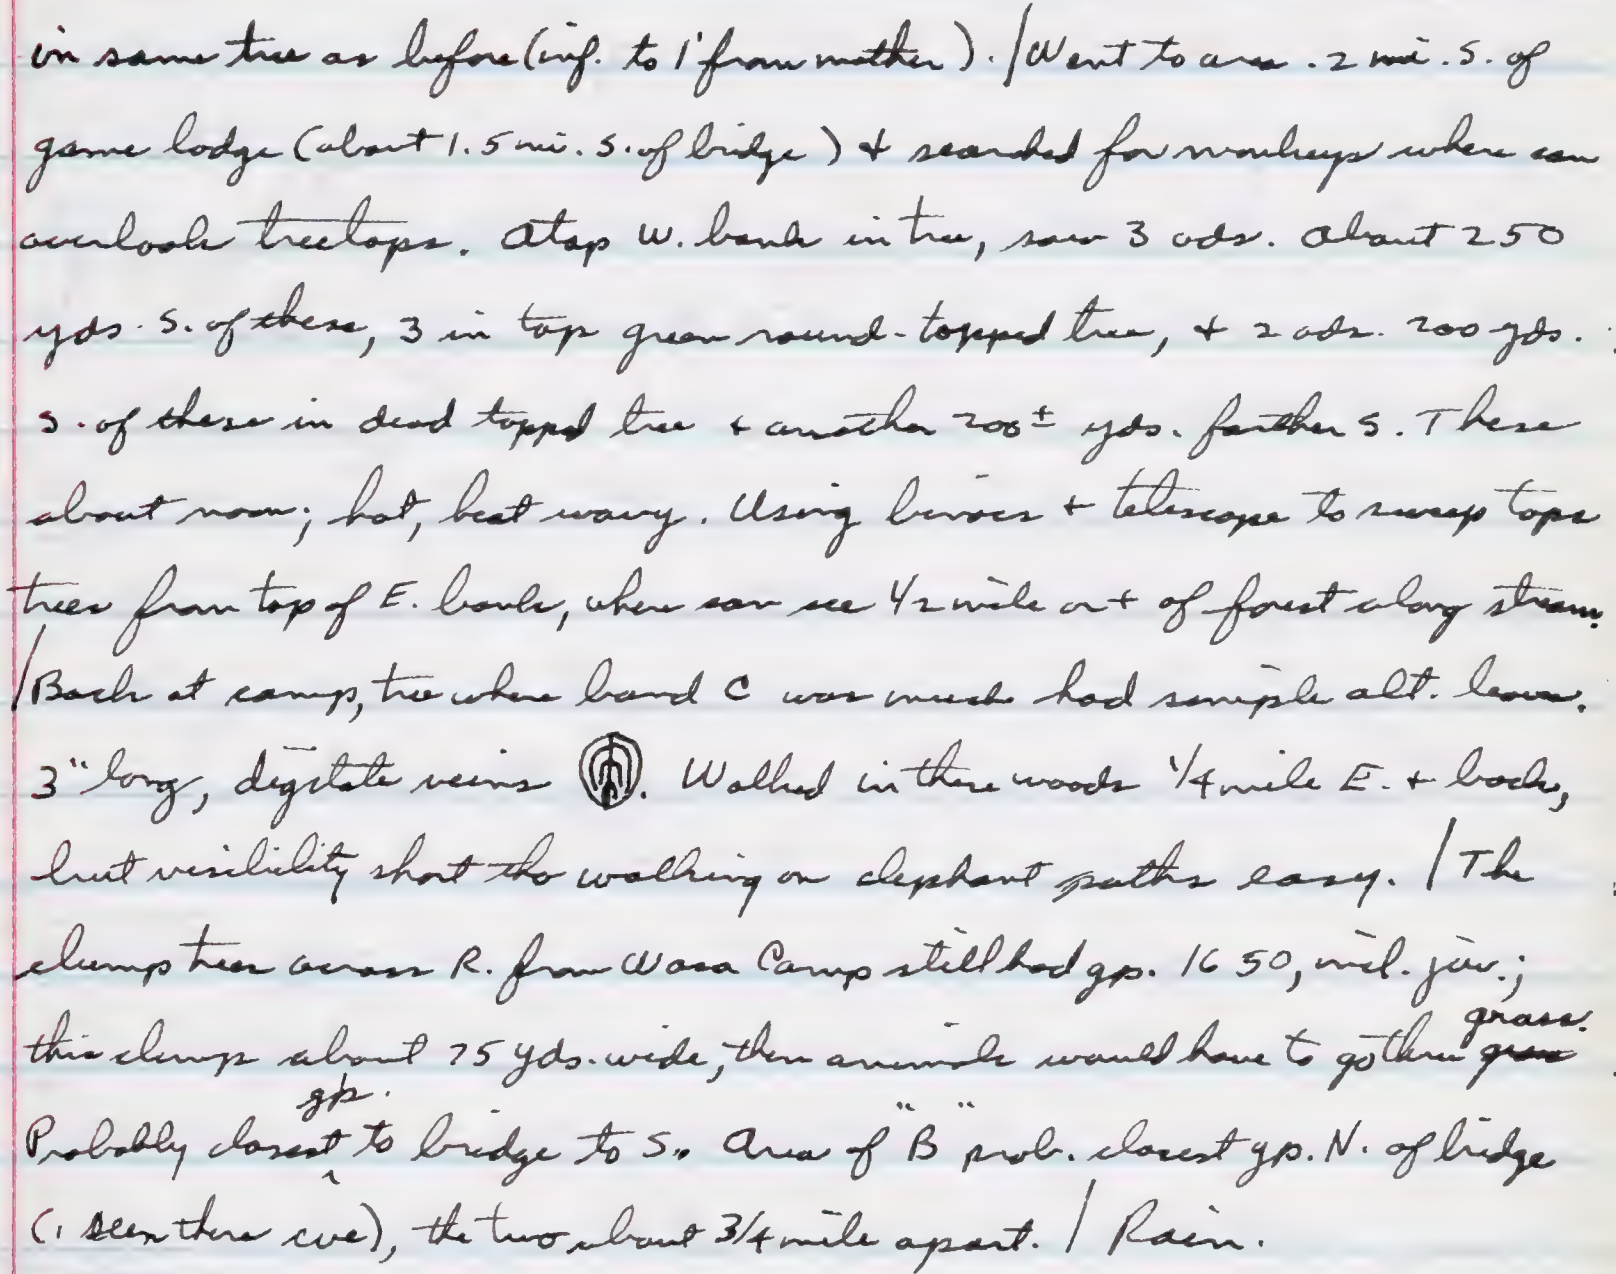 in same tree as before (inf. to 1' from mother). / Went to area .2 mi. S. of
game lodge (about 1.5 mi. S. of bridge) + searched for monkeys where can
overlook treetops. Atop W. bank in tree, saw 3 ads. About 250
yds. S. of these, 3 in top green round-topped tree, + 2 ads. 200 yds.
S. of these in dead topped tree + another 200± yds. farther S. These
about noon; hot, heat wavy. Using binocs + telescope to sweep tops
trees from top of E. bank, where can see 1/2 mile or + of forest along stream.
/ Back at camp, tree where band C was much had simple alt. leaves.
3" long, digitate veins. Walked in these woods 1/4 mile E. + back,
but visibility short tho walking on elephant paths easy. / The
clump trees across R. from Wasa Camp still had gp. 1650, incl. juv.;
this clump about 75 yds. wide, then animals would have to go thru grass.
Probably closest gp. to bridge to S. Area of "B" prob. closest gp. N. of bridge
(1 seen there eve), the two about 3/4 mile apart. / Rain.